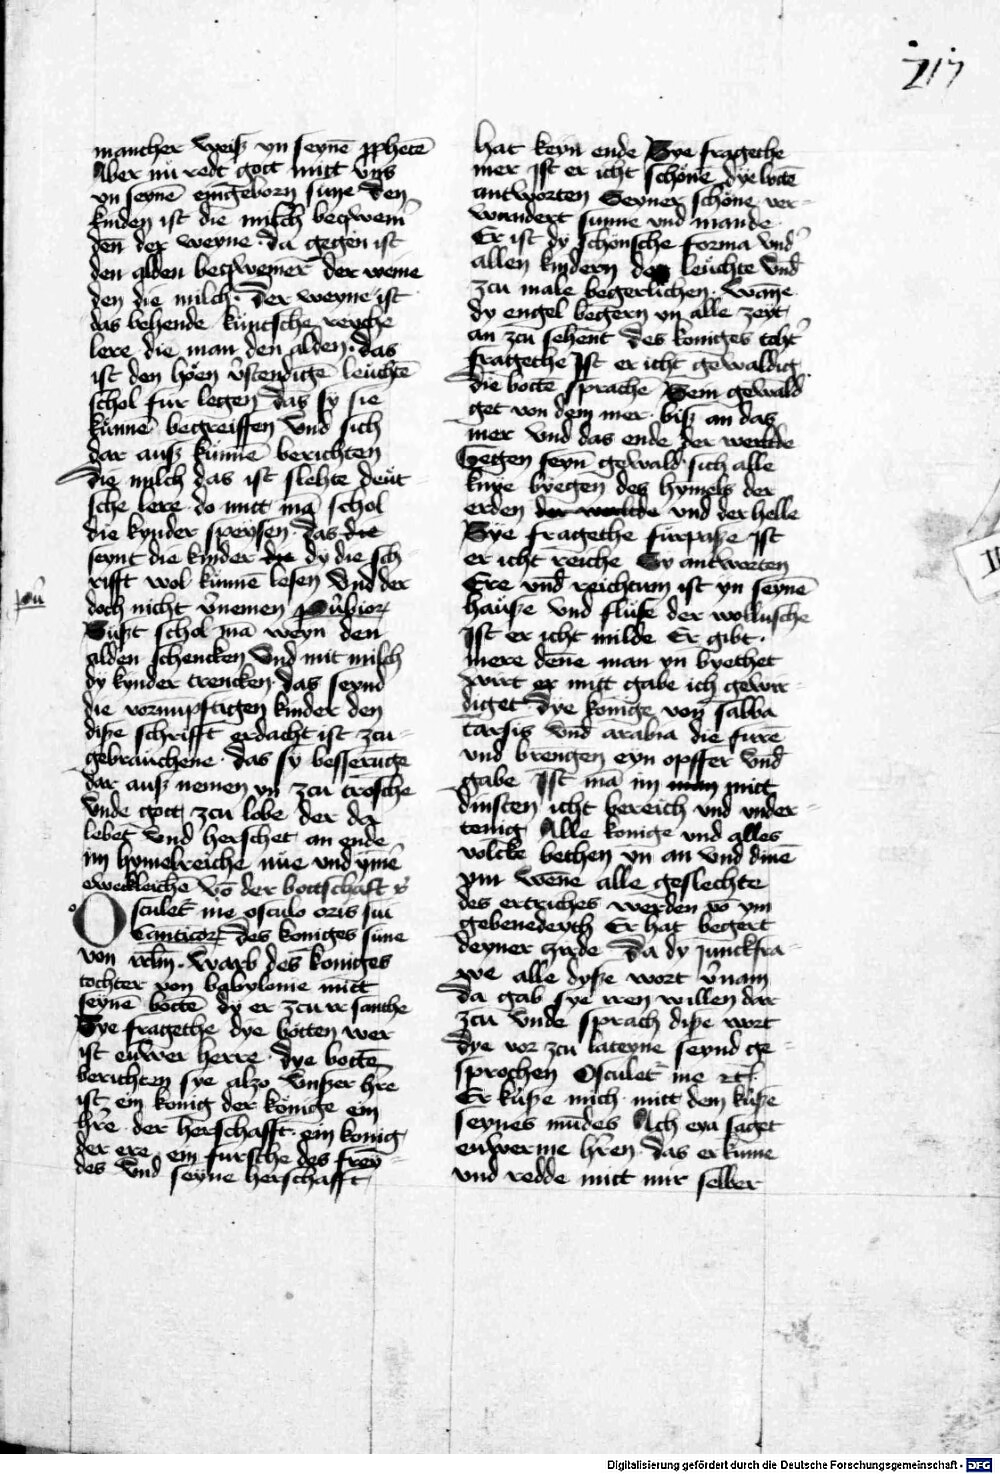 217
mancher weisz yn seynē ꝓphetē
Aber nu redt gott mitt vns
yn seynē eingeborn sune Den
kinden ist die milch beqwem̄
den der weyne · da gegen ist
den alden beqwemer der weine
den die milch · Der weyne ist
das behende künstsche reyche
lere die man den alden · das
ist den hoen v̄stendigē leuchtē
schol fur legen das sy sie
kunnē begreiffen vnd sich
dar ausz kunnē berichten
Die milch das ist slehte deut
sche lere · do mitt mā schol
die kynder speysen · das die
seynt die kinder die dy die sch
rifft wol kunne lesen vnd der
doch nicht v̄nemen
Suszt schol mā weyn den
alden schencken vnd mit milch
dy kynder trencken · das seynd
die vornupftigen kinder den
disze schrifft erdacht ist zcu
gebrauchene · das sy besserunge
dar ausz nemen yn zcu trosche
vnde gott zcu lobe der da
lebet vnd herschet an ende
im hymelreiche nue vnd ymē
eweckleichē vō der bottschaft
Osculet me osculo oris sui
Canticor des koniges sune
von irlm · warb des koniges
tochter von babylonie mitt
seynē bottē dy er zcu ir santhe
Sye fragethe dye botten wer
ist euwer herre · Dye bottē
berichten sye alzo vnszer hr̄e
ist ein konig der könige ein
hr̄e der herschafft · ein konig
der ere · ein fursche des frey
des vnd seyne herschafft
hat keyn ende Sye fragethe
mer Ist er icht schöne dye botē
antworten Seyner schöne ver
wundert sunne vnd mande
Er ist dy schönsche forma vnd
allen kindern der leuchte vnd
zcu male begerlichen · wane
dy engel begern yn alle zeyt
an zcu sehent des koniges toht
fragethe Ist er icht gewaldig
die bottē sprache Sein gewald
get von dem mer · bisz an das
mer vnd das ende der werlde
Gegen seyn gewald sich alle
knye byegen des hymels der
erden der werlde vnd der helle
Sye fragethe furpasze Ist
er icht reiche Sy antworten
Ere vnd reichtum ist yn seynē
hausze vnd flusse der wollusche
Ist er icht milde Er gibt ·
mere denne man yn byethet
wirt er mitt gabe ich gewir
diget Dye konige von sabba
tarsis vnd arabia die furē
vnd brengen eyn opffer vnd
gabe Ist mā im man mitt
dinsten icht bereich vnd vnder
tenig Alle konige vnd alles
volcke bethen yn an vnd dinē
ym wēne alle geslechte
des ertriches werden vō ym
gebenedeyth Er hat begert
deyner zirde Da dy junckfra
we alle dysse wort v̄nam
Da gab sye iren willen dar
zcu vnde sprach disze wort
dye vor zcu lateyne seynd ge
sprochen Osculet me etc
Er küsze mich mitt dem küsze
seynes mūdes Ach eya saget
euwerme hr̄en · das er kume
vnd redde mitt mir selber
Digitalisierung gefördert durch die Deutsche Forschungsgemeinschaft - DFG